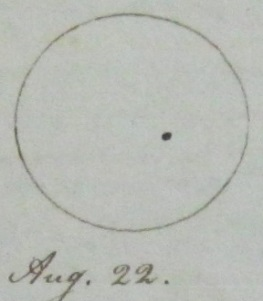 Aug. 22.